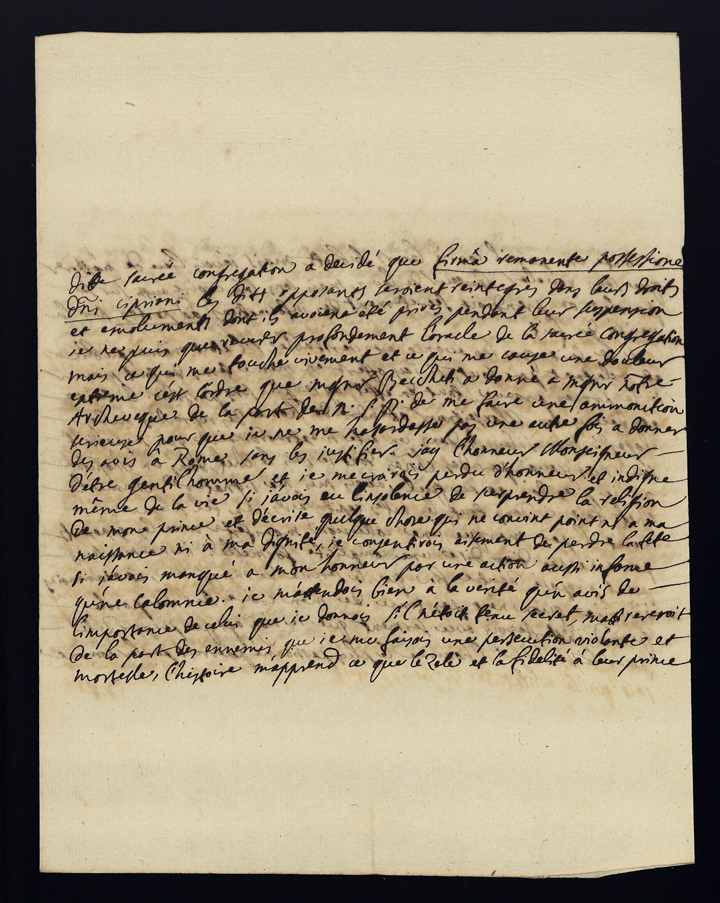 dite sacrée congregation a decidé que firma remanente possessione
dni cipriani les dits opposants seroient reintegrés dans leurs droits
et emoluments dont ils avoient été privés pendant leur suspension
je ne puis que reverer profondement l'oracle de la sacrée congregation
mais ce qui me touche vivement et ce qui me cause une douleur
extreme c'est l'ordre que mgnr Becchetti a donné a mgnr nôtre
Archeveque de la part de N. S. P. de me faire une ammonition
serieuse pour que je ne me hazardasse pas une autre fois a donner
des avis à Rome sans les justifier. j'ay l'honneur Monseigneur
d'être gentilhomme et je me croirois perdu d'honneur et indigne
même de la vie si j'avois eu l'insolence de surprendre la religion
de mon prince et d'ecrire quelque chose qui ne convint point ni a ma
naissance ni à ma dignité, je consentirois aisement de perdre la tête
si j'avois manqué a mon honneur par une action aussi infame
qu'une calomnie. je m'attendois bien à la verité qu'un avis de
l'importance de celui que je donnois s'il n'etoit tenu secret, m'attireroit
de la part des ennemis que je me faisois une persecution violente et
mortelle, l'histoire m'apprend ce que le zele et la fidelité à leur prince